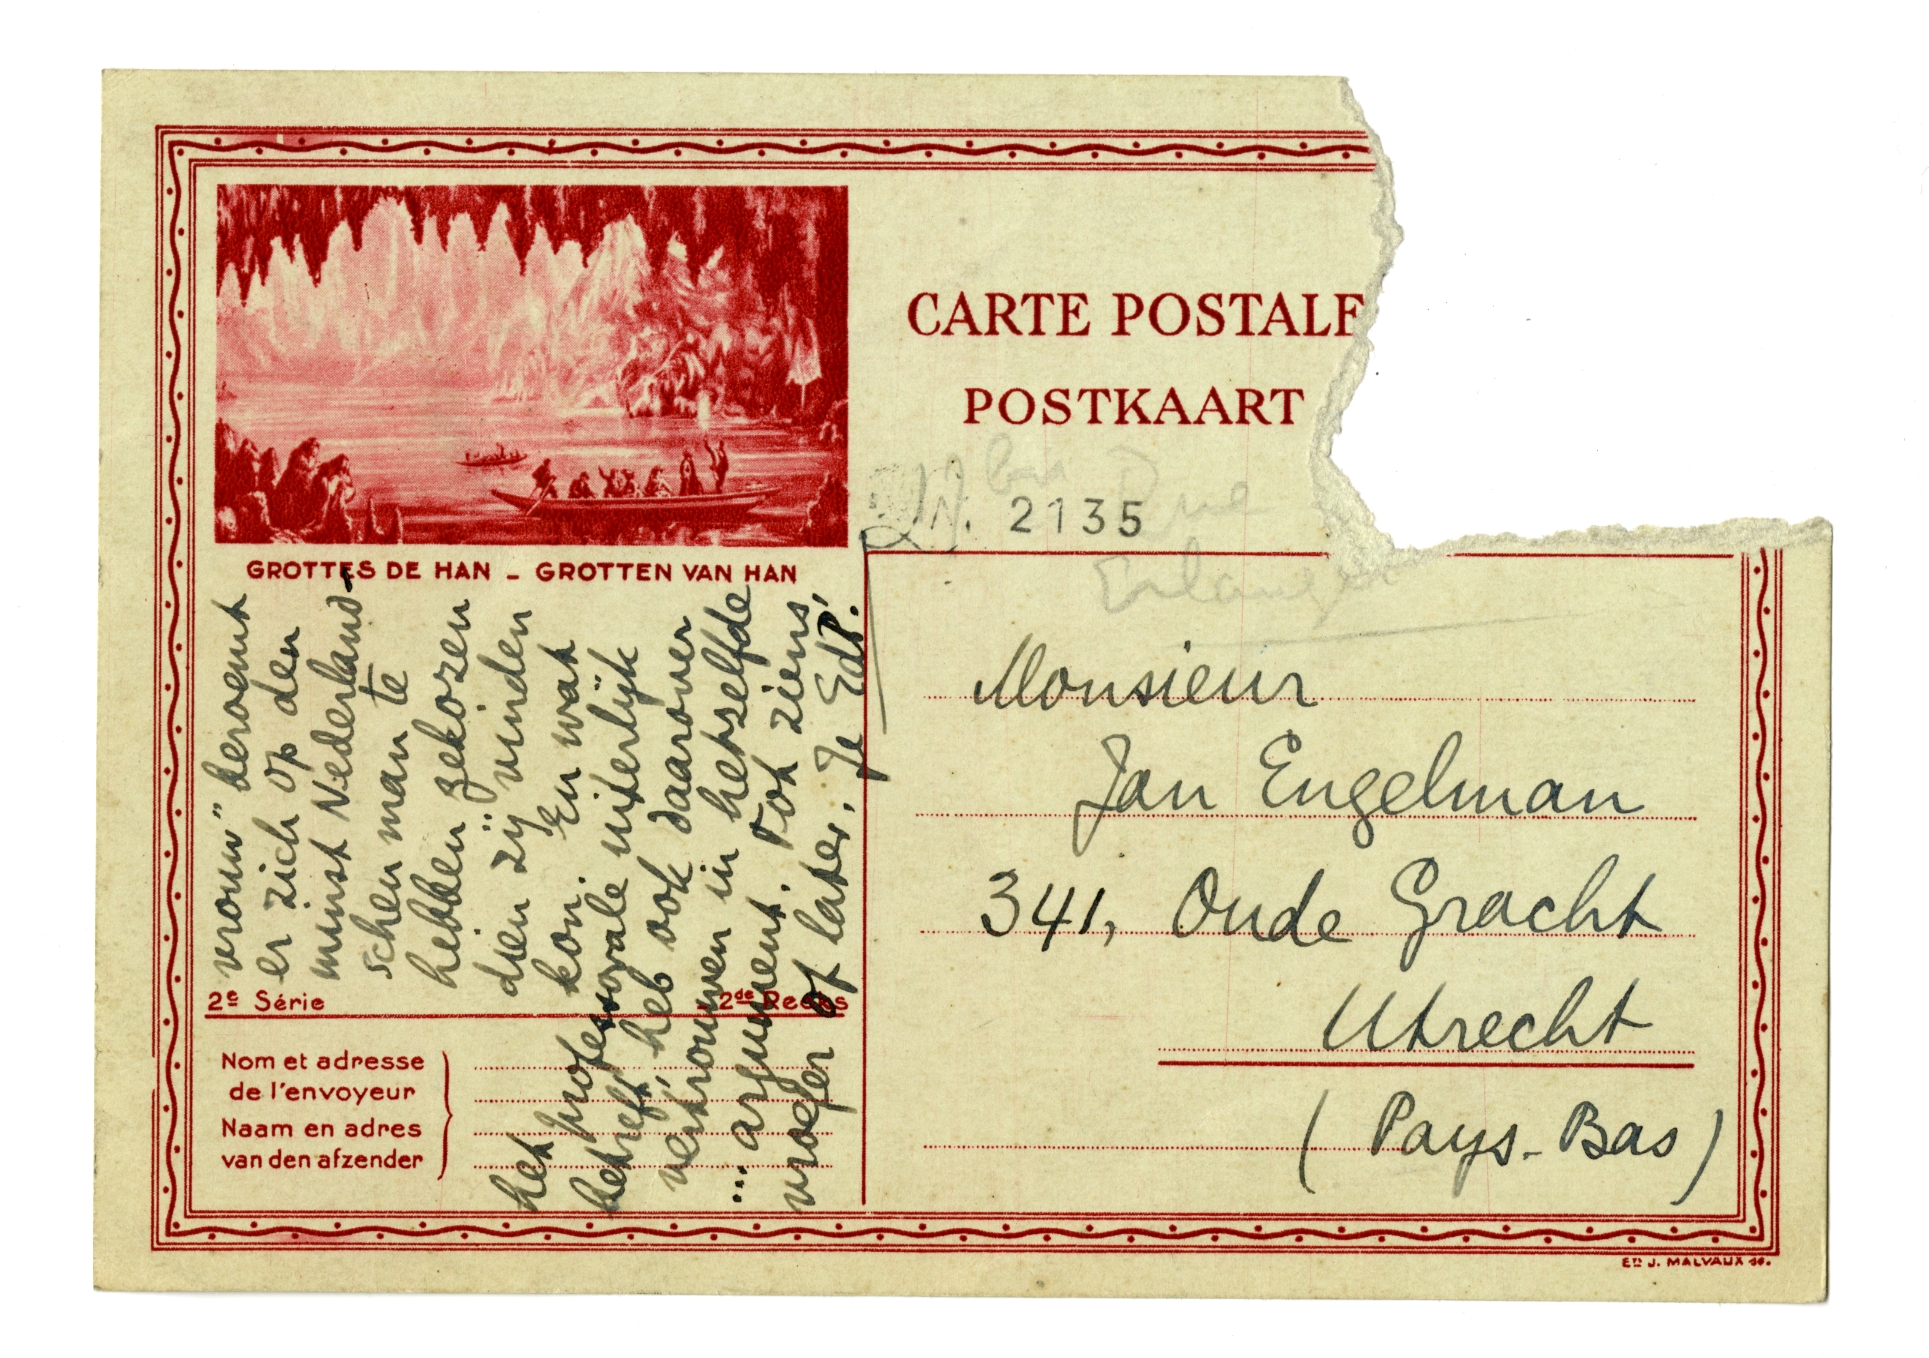 CARTE POSTALE
POSTKAART
N. 2135
GROTTES DE HAN – GROTTEN VAN HAN
vrouw" beroemt
er zich op den
minst Nederland-
schen man te
hebben gekozen
dien zij vinden
kon. En wat
het professorale uiterlijk
betreft, heb ook daarover
vertrouwen in hetzelfde
... argument. Tot ziens,
vroeger of later, Je EdP.
2e Série
2de Reeks
Nom et adresse
de l'envoyeur
Naam en adres
van den afzender
Erlanger
Monsieur
Jan Engelman
341, Oude Gracht
Utrecht
(Pays-Bas)
Ets J. MALVAUX